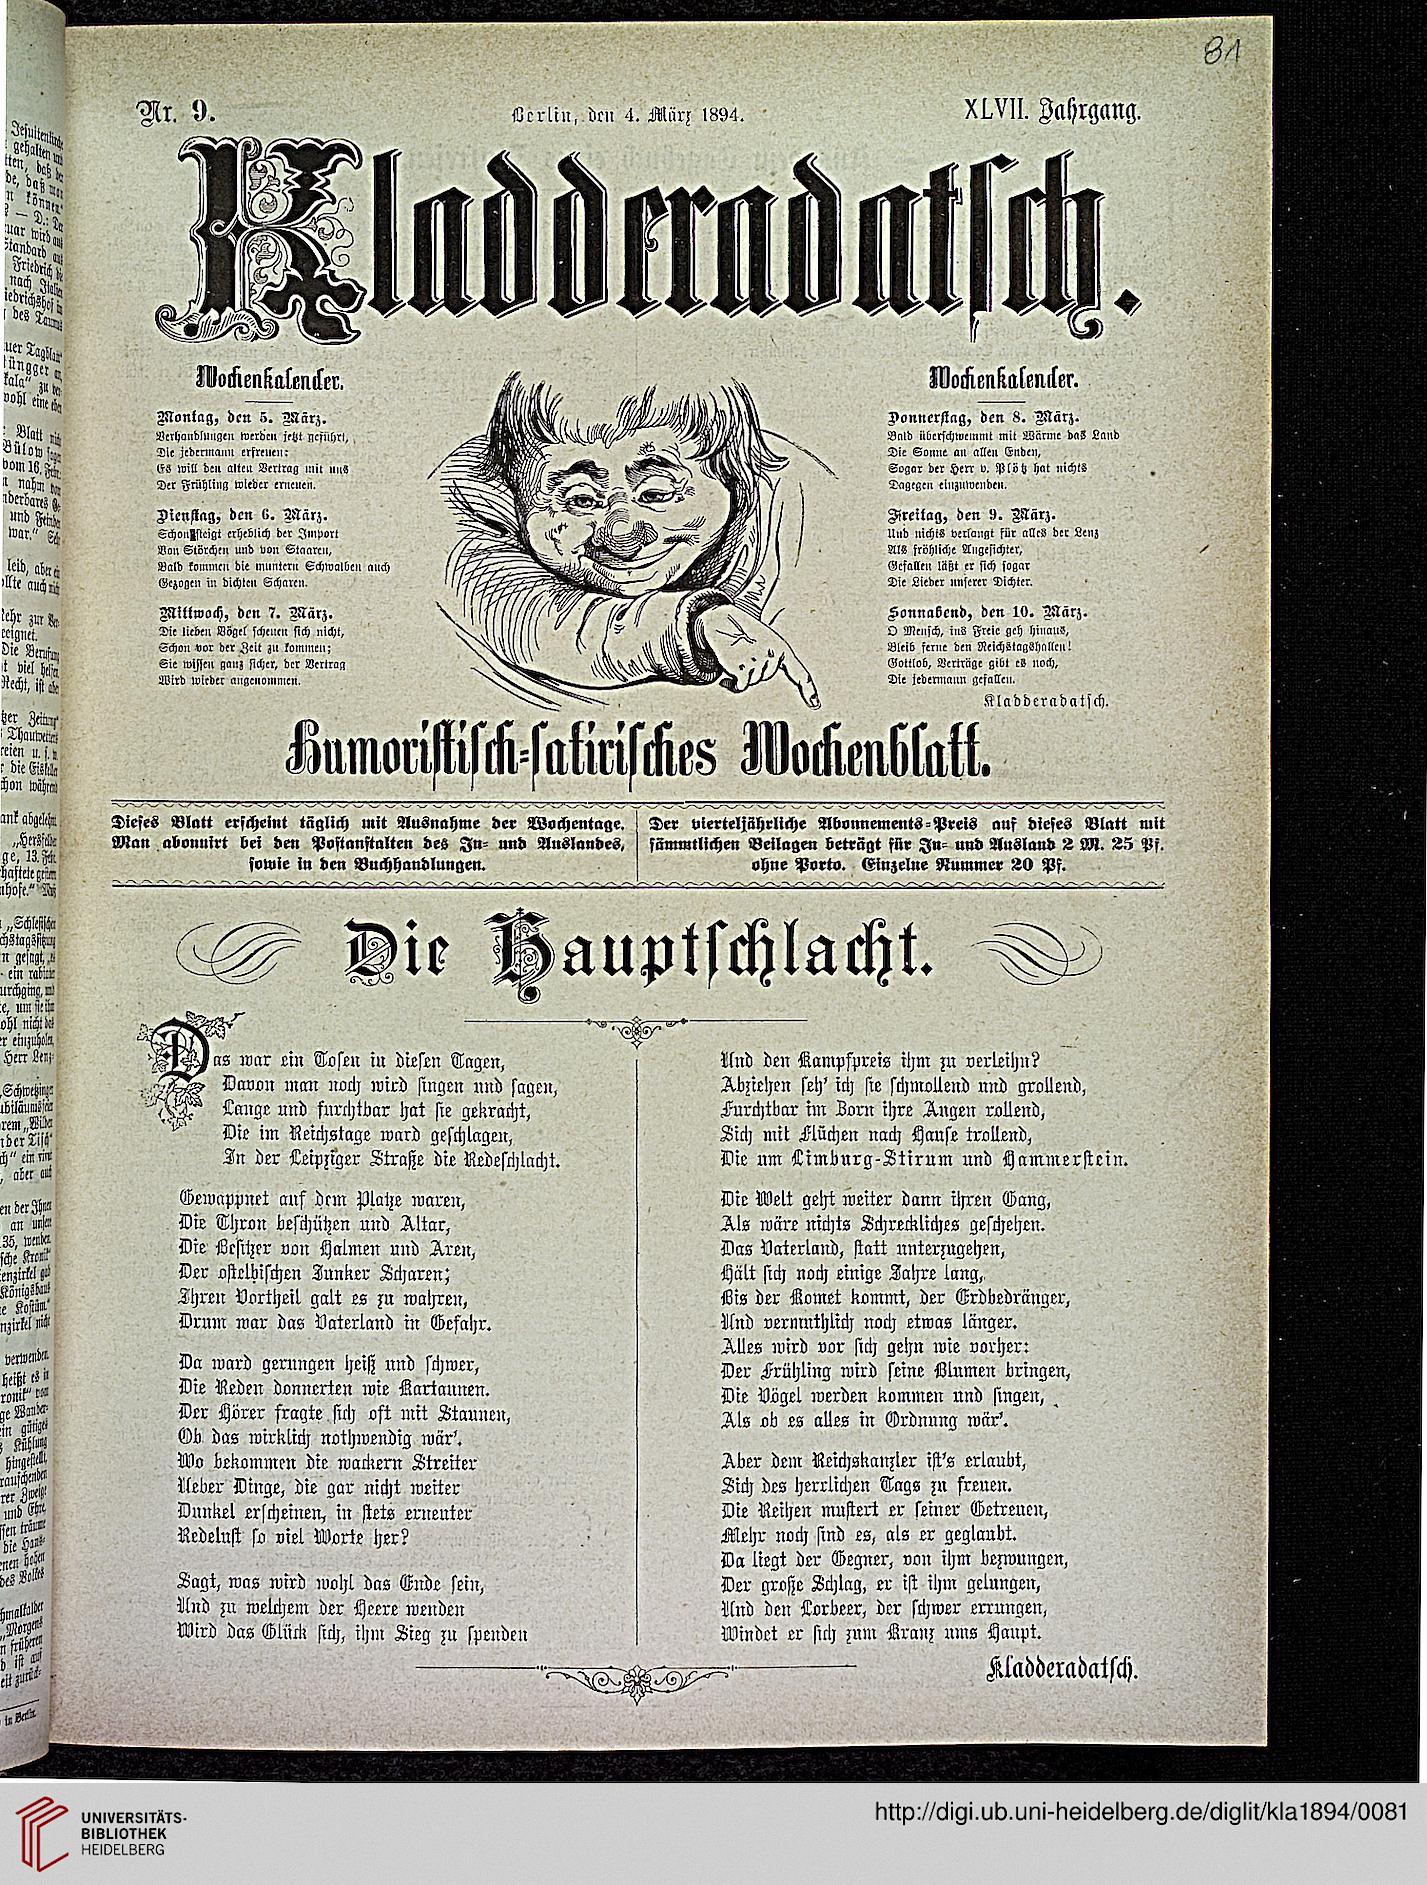 81
Nr. 9.
Berlin, den 4. März 1894.
XLVII. Jahrgang.
Kladderadatsch.
Wochenkalender.
Montag, den 5. März.
Verhandlungen werden jetzt geführt,
Die jedermann erfreuen:
Es will den alten Vertrag mit uns
Der Frühling wieder erneuen.
Dienstag, den 6. März.
Schon steigt erheblich der Import
Von Störchen und von Staaren,
Bald kommen die muntern Schwalben auch
Gezogen in dichten Scharen.
Mittwoch, den 7. März.
Die lieben Vögel scheuen sich nicht,
Schon vor der Zeit zu kommen;
Sie wissen ganz sicher, der Vertrag
Wird wieder angenommen.
Wochenkalender.
Donnerstag, den 8. März.
Bald überschwemmt mit Wärme das Land
Die Sonne an allen Enden,
Sogar der Herr v. Plötz hat nichts
Dagegen einzuwenden.
Freitag, den 9. März.
Und nichts verlangt für alles der Lenz
Als fröhliche Angesichter,
Gefallen läßt er sich sogar
Die Lieder unserer Dichter.
Sonnabend, den 10. März.
O Mensch, ins Freie geh hinaus,
Bleib ferne den Reichstagshallen!
Gottlob, Verträge gibt es noch,
Die jedermann gefallen.
Kladderadatsch.
Humoristisch-satirisches Wochenblatt.
Dieses Blatt erscheint täglich mit Ausnahme der Wochentage.
Man abonnirt bei den Postanstalten des In- und Auslandes,
sowie in den Buchhandlungen.
Der vierteljährliche Abonnements-Preis auf dieses Blatt mit
sämmtlichen Beilagen beträgt für In- und Ausland 2 M. 25 Pf.
ohne Porto. Einzelne Nummer 20 Pf.
Die Hauptschlacht.
Das war ein Tosen in diesen Tagen,
Davon man noch wird singen und sagen,
Lange und furchtbar hat sie gekracht,
Die im Reichstage ward geschlagen,
In der Leipziger Straße die Redeschlacht.
Gewappnet auf dem Platze waren,
Die Thron beschützen und Altar,
Die Besitzer von Halmen und Aren,
Der ostelbischen Junker Scharen;
Ihren Vortheil galt es zu wahren,
Drum war das Vaterland in Gefahr.
Da ward gerungen heiß und schwer,
Die Reden donnerten wie Kartaunen.
Der Hörer fragte sich oft mit Staunen,
Ob das wirklich nothwendig wär'.
Wo bekommen die wackern Streiter
Ueber Dinge, die gar nicht weiter
Dunkel erscheinen, in stets erneuter
Redelust so viel Worte her?
Sagt, was wird wohl das Ende sein,
Und zu welchem der Heere wenden
Wird das Glück sich, ihm Sieg zu spenden
Und den Kampfpreis ihm zu verleihn?
Abziehen seh' ich sie schmollend und grollend,
Furchtbar im Zorn ihre Augen rollend,
Sich mit Flüchen nach Hause trollend,
Die um Limburg-Stirum und Hammerstein.
Die Welt geht weiter dann ihren Gang,
Als wäre nichts Schreckliches geschehen.
Das Vaterland, statt unterzugehen,
Hält sich noch einige Jahre lang,
Bis der Komet kommt, der Erdbedränger,
Und vermuthlich noch etwas länger.
Alles wird vor sich gehn wie vorher:
Der Frühling wird seine Blumen bringen,
Die Vögel werden kommen und singen,
Als ob es alles in Ordnung wär'.
Aber dem Reichskanzler ist's erlaubt,
Sich des herrlichen Tags zu freuen.
Die Reihen mustert er seiner Getreuen,
Mehr noch sind es, als er geglaubt.
Da liegt der Gegner, von ihm bezwungen,
Der große Schlag, er ist ihm gelungen,
Und den Lorbeer, der schwer errungen,
Windet er sich zum Kranz ums Haupt.
Kladderadatsch.
UNIVERSITÄTS-
BIBLIOTHEK
HEIDELBERG
http://digi.ub.uni-heidelberg.de/diglit/kla1894/0081